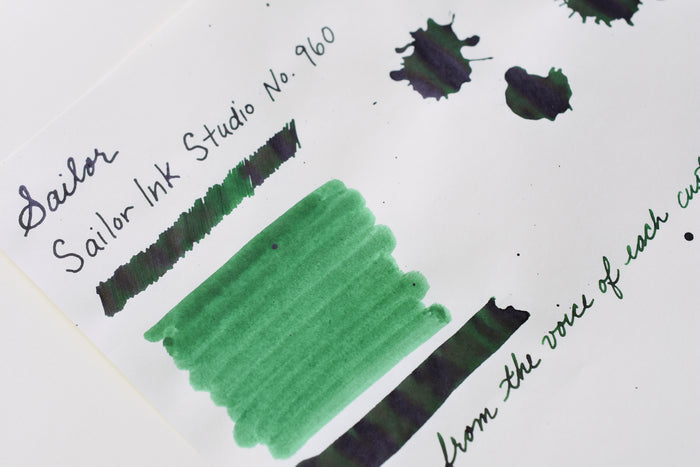 Sailor
Sailor Ink Studio No. 960
from the voice of each